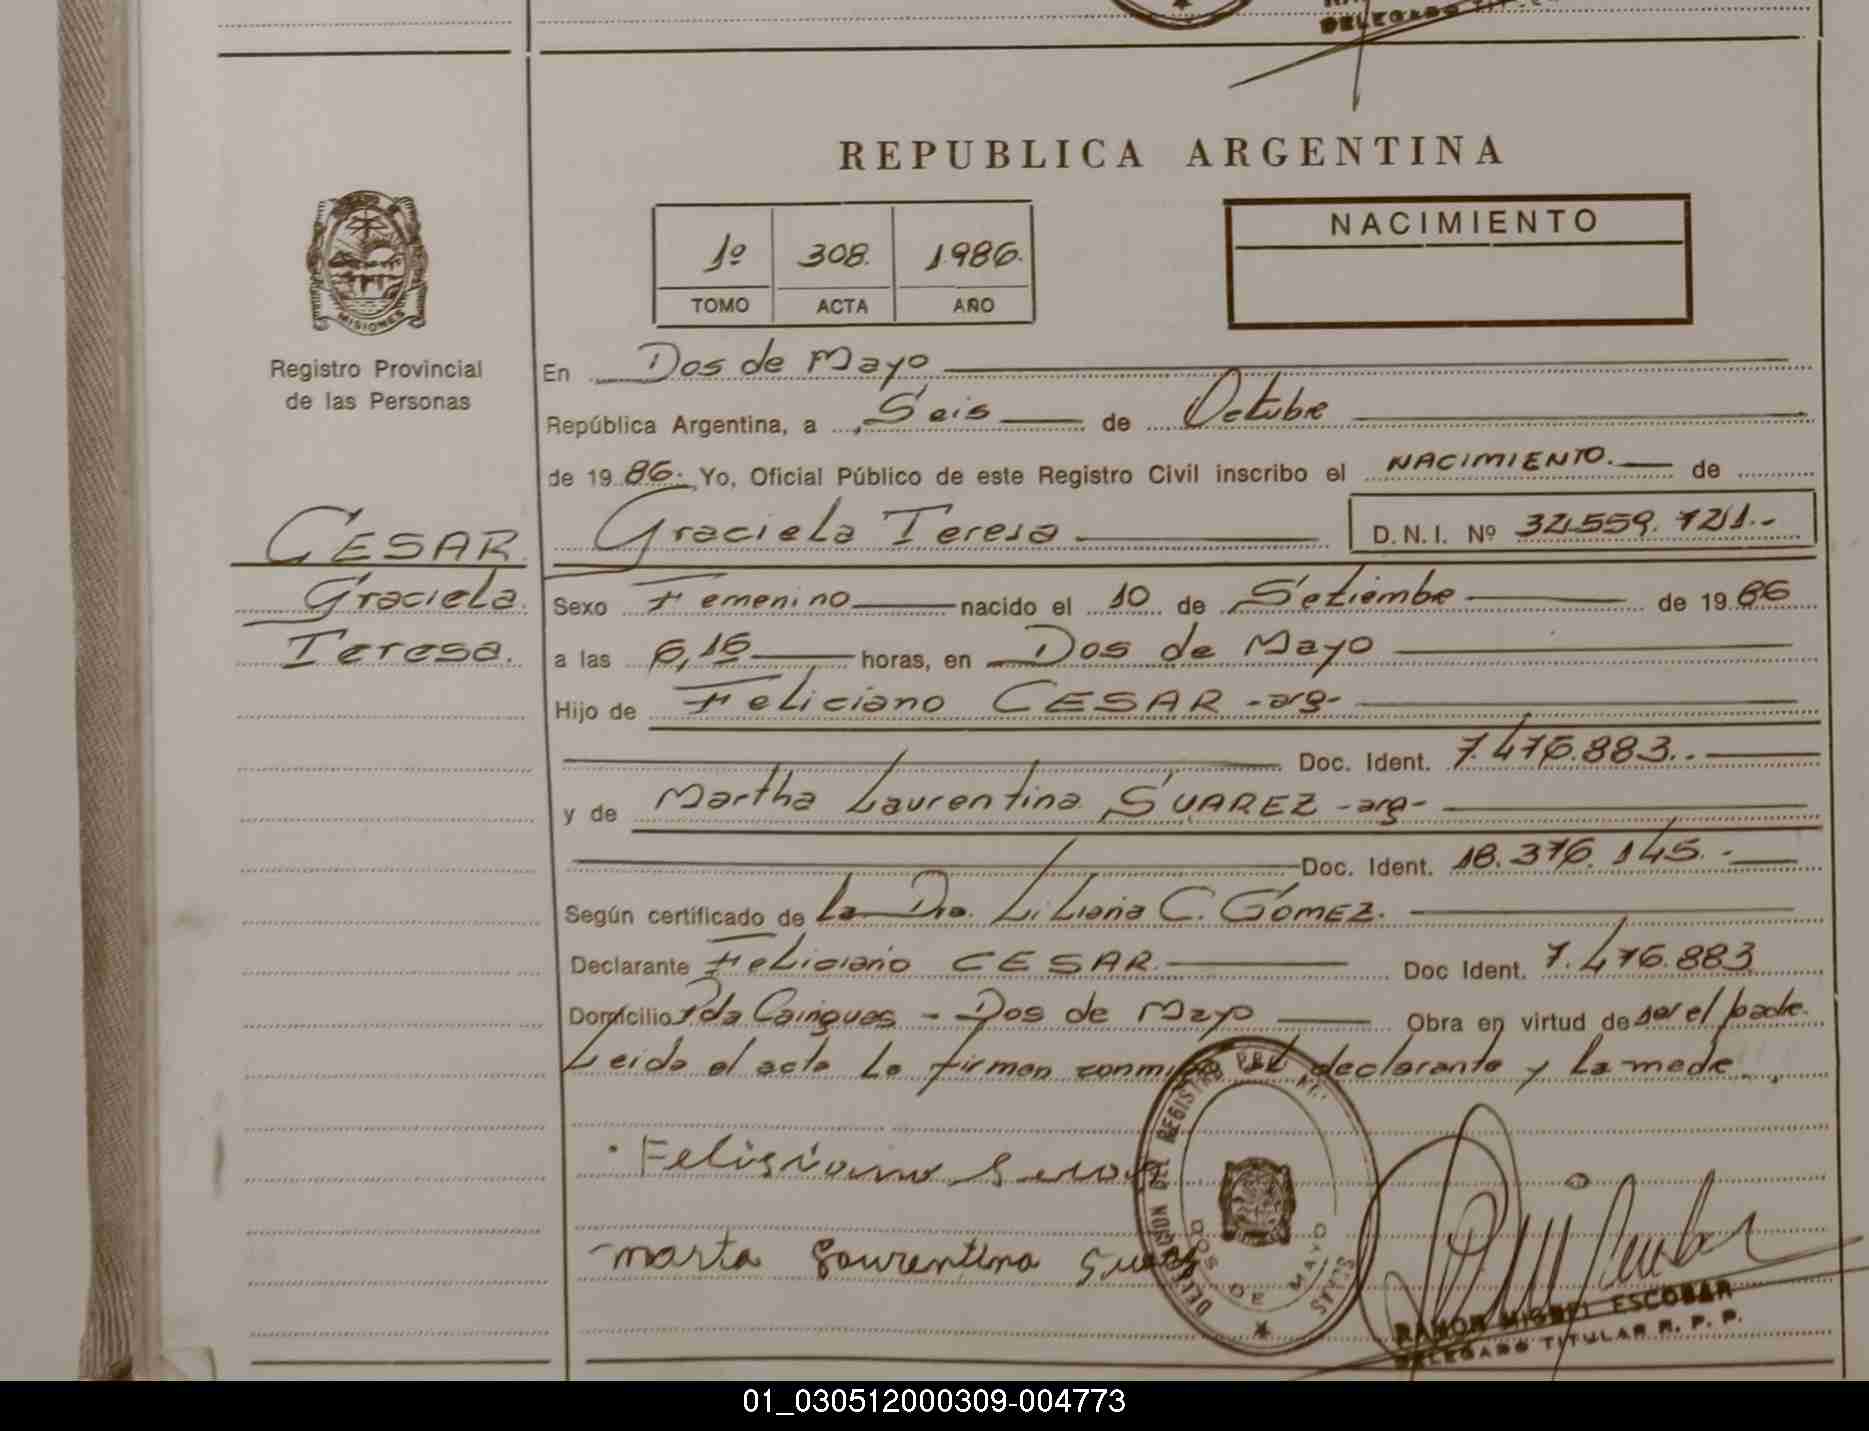 DELEGADO TITULAR
REPUBLICA ARGENTINA
NACIMIENTO
1º 308. 1986.
TOMO ACTA AÑO
MISIONES
Registro Provincial
de las Personas
En Dos de Mayo
República Argentina, a Seis de Octubre
de 19 86. Yo, Oficial Público de este Registro Civil inscribo el NACIMIENTO. de
CESAR
Graciela
Teresa.
Graciela Teresa D.N.I. Nº 32.559.721.-
Sexo Femenino nacido el 10 de Setiembe de 19 86
a las 6,15 horas, en Dos de Mayo
Hijo de Feliciano CESAR -arg-
Doc. Ident. 7.476.883.-
y de Martha Laurentina SUAREZ -arg-
Doc. Ident. 18.376.145.-
Según certificado de La Dra. Liliana C. GÓMEZ.
Declarante Feliciano CESAR. Doc Ident. 7.476.883
Domicilio Pda Cainguas - Dos de Mayo Obra en virtud de ser el padre.
Leida el acta la firman conmigo el declarante y la madre.
Felisiano
marta Laurentina
DOS DE MAYO
RAMON MIGUEL ESCOBAR
DELEGADO TITULAR R. P. P.
01_030512000309-004773